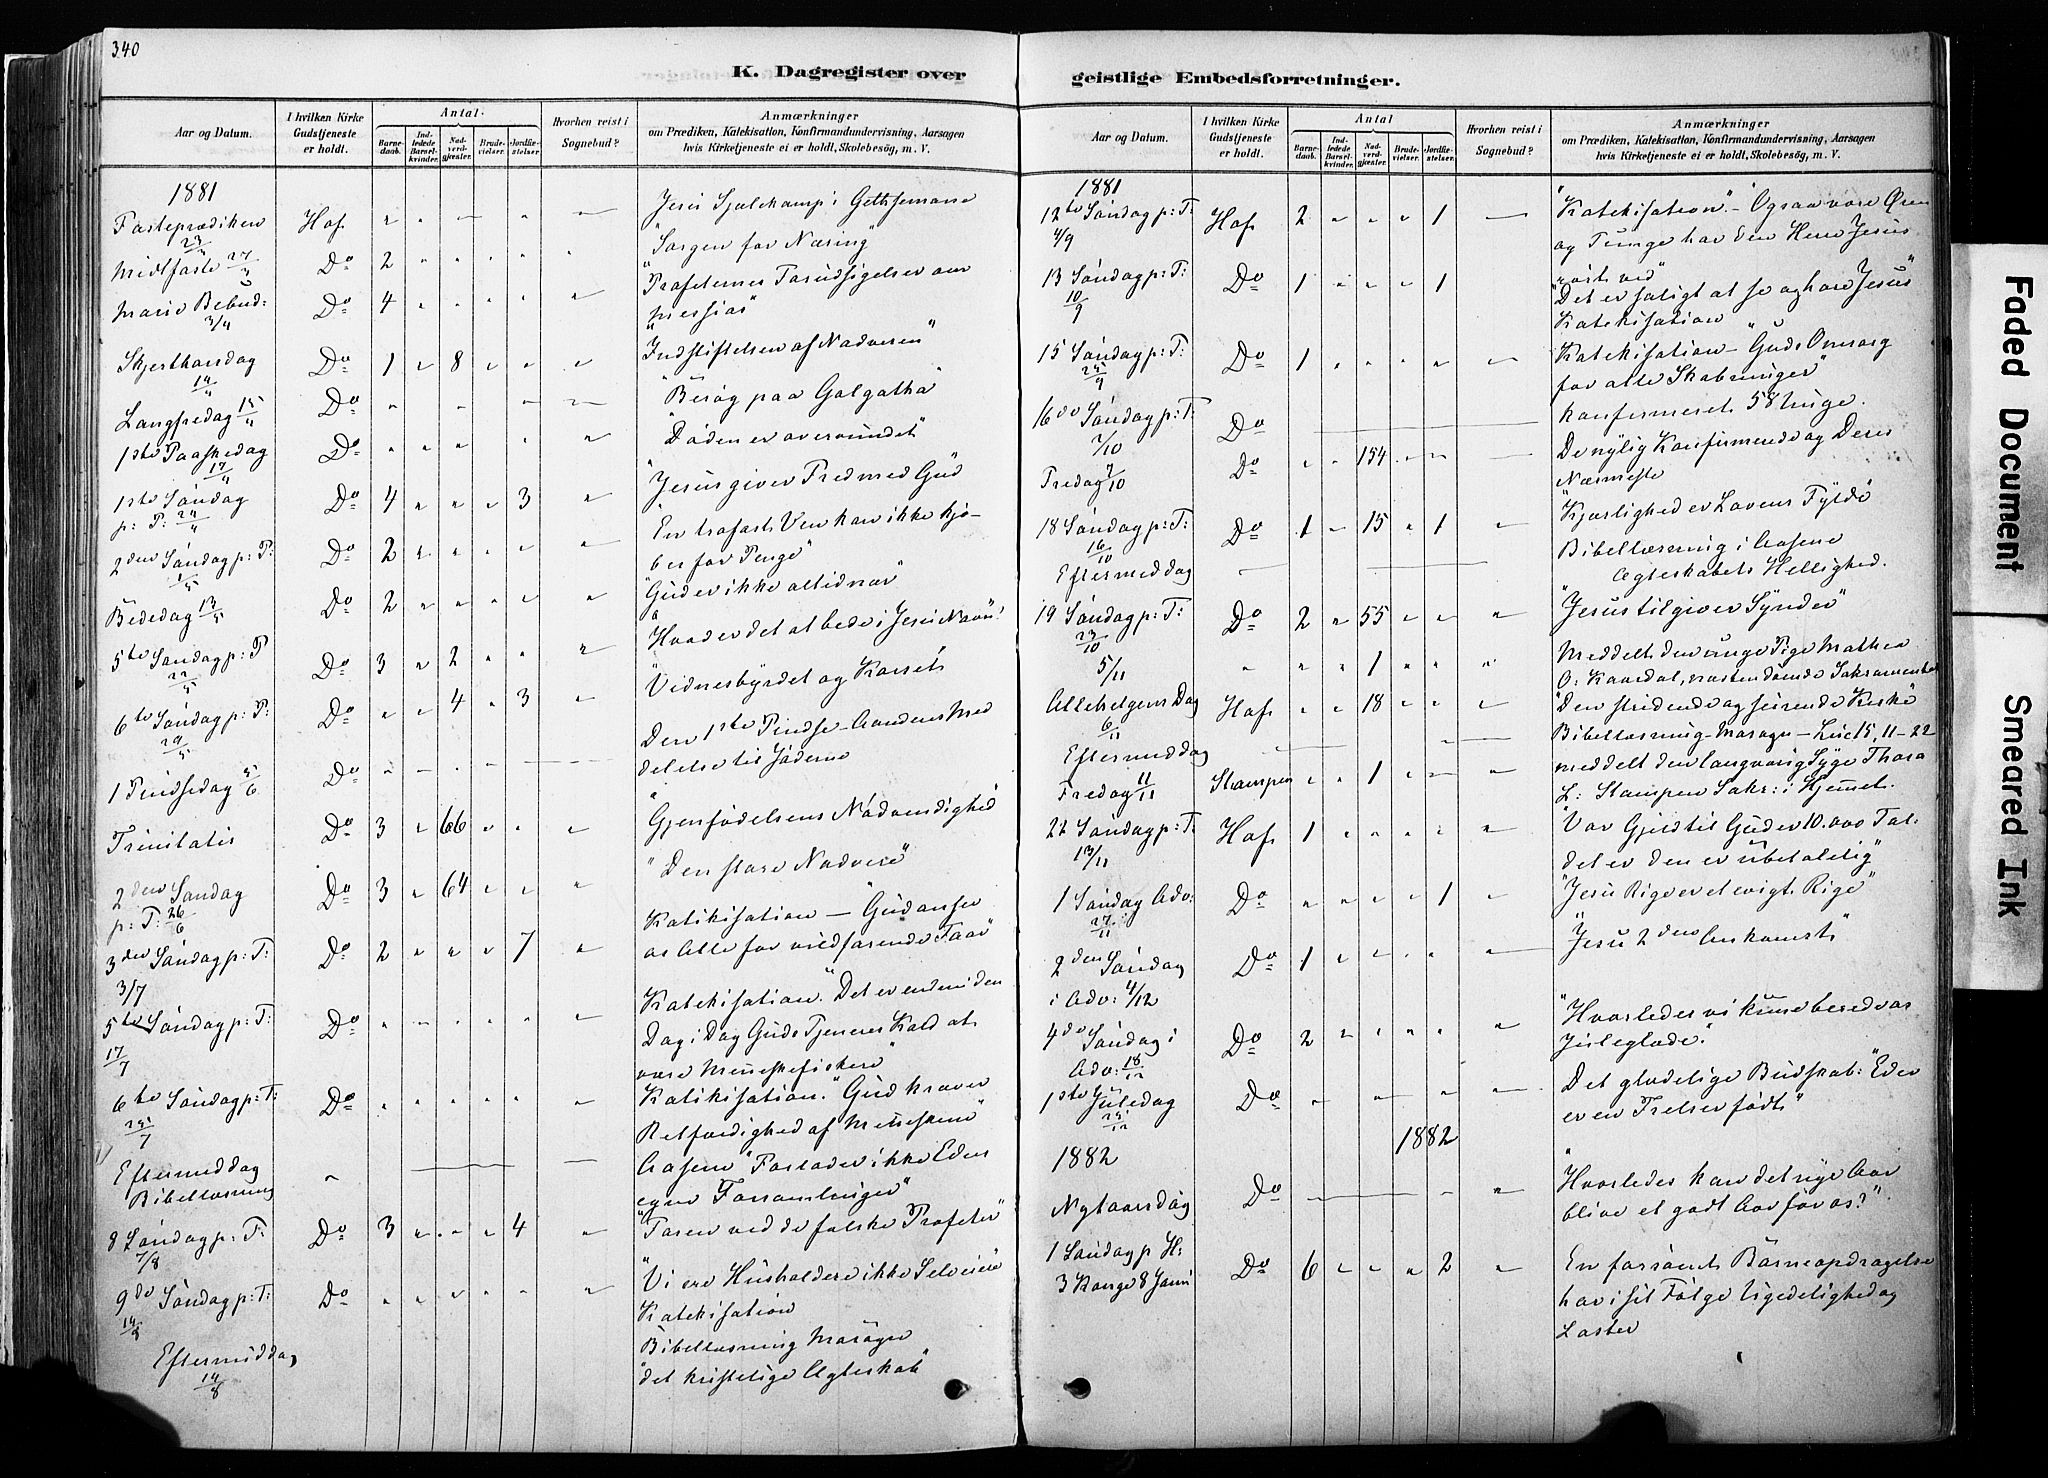 340
K. Dagregister over
Aar og Datum.
I hvilken Kirke Gudstjeneste er holdt.
Antal.
Barnedaab.
Indledede Barselkvinder.
Nadverdgjæster.
Brudevielser.
Jordfæstelser.
Hvorhen reist i Sognebud?
Anmærkninger
om Prædiken, Katekisation, Konfirmandundervisning, Aarsagen
hvis Kirketjeneste ei er holdt, Skolebesøg, m. V.
1881
Fasteprædiken Hof " " — " — Jesu Sjælekamp i Gethsemane
23/3 "Sorgen for Næring"
Midtfaste 27/3 Do 2 " " " " "
Mariæ Bebud: Do 4 " " " " " "Profeternes Forudsigelser om
3/4 Messias"
Skjærthorsdag Do 1 " 8 " " " "Indstiftelsen af Nadveren"
14/4
Langfredag 15/4 Do " " " " — "Besøg paa Golgatha"
1ste Paaskedag Do " " " " " "Døden er overvundet"
17/4
1ste Søndag Do 4 " " " 3 " "Jesus giver Fred med Gud
p: P: 24/4
2den Søndag p: P: Do 2 " " " " " "En trofast Ven kan ikke kjø-
1/5 bes for Penge"
Bededag 13/5 Do 2 " " " " " "Gud er ikke altid nær"
5te Søndag p: P Do 3 " 2 " " " Hvad er det at bede i Jesu Navn!
22/5
6te Søndag p: P: Do " " 4 " 3 " Vidnesbyrdet og Korset
29/5
1 Pindsedag 5/6 Do " — " — Den 1ste Pindse-Aandens Med
delelse til Jøderne
Trinitatis Do 3 " 66 " " " "Gjenfødelsens Nødvendighed
2den Søndag Do 3 " 64 " " " "Den store Nadvere"
p: T: 26/6
3die Søndag p: T: Do 2 " " " 7 " Katekisation — "Gud anser
3/7 os Alle for vildfarende Faar"
5te Søndag p: T: Do " " " " " " Katekisation. "Det er endnu den
17/7 Dag i Dag Guds Tjeneres Kald at
være Menneskefiskere"
6te Søndag p: T: Do " " " " " " Katekisation. "Gud kræver
24/7 Retfærdighed af Menneskene"
Eftermiddag " — — Aasene "Forlader ikke Eders
Bibellæsning egne Forsamlinger"
8 Søndag p: T: Do 3 " " " 4 " "Faren ved de falske Profeter"
7/8
9de Søndag p: T: Do " " " " " " "Vi ere Husholdere ikke Selveiere
14/8 Katekisation
Eftermiddag Bibellæsning
14/8 "det kristelige Ægteskab"
geistlige Embedsforretninger.
Aar og Datum.
I hvilken Kirke Gudstjeneste er holdt.
Antal
Barnedaab.
Indledede Barselkvinder.
Nadverdgjæster.
Brudevielser.
Jordfæstelser.
Hvorhen reist i Sognebud?
Anmærkninger
om Prædiken, Katekisation, Konfirmandundervisning, Aarsagen
hvis Kirketjeneste ei er holdt, Skolebesøg, m. V.
1881
12te Søndag p: T: Hof 2 " " " 1 — "Katekisation." — Ogsaa vore Øren
4/9 og Tunge har den Herre Jesus
løst ved"
13 Søndag p: T: Do 1 " " " 1 — "Det er saligt at se og høre Jesus"
10/9 Katekisation
15 Søndag p: T: Do 1 " " " " " Katekisation — "Guds Omsorg
25/9 for alle Skabninger"
16de Søndag p: T: Do — — konfirmeret 58 Unge.
2/10
Fredag 7/10 Do " " 154 " " — De nylig Konfirmerede og Deres
Nærmeste
18 Søndag p: T: Do 1 " 15 " 1 " "Kjærlighed er Lovens Fylde
16/10
Eftermeddag — — — Bibellæsning i Aasene
Ægteskabets Hellighed.
19 Søndag p: T: Do 2 " 55 " " " "Jesus tilgiver Synder"
23/10
5/11 " " " 1 " " " Meddelt den unge Pige Mathea
O: Kaardal, næsten døende Sakramentet
Allehelgens Dag Hof " " 18 " " " "Den stridende og seirende Kirke
6/11
Eftermiddag — Bibellæsning — Luc 15, 11—22
Fredag 11/11 Stampen " " 1 " " " meddelt den langvarig Syge Thora
L: Stampen Sakr: i Hjemmet.
22 Søndag p: T: Hof 1 " " " " " Vor Gjeld til Gud er 10.000 Tal-
13/11 det er den er ubetalelig"
1 Søndag Adv: Do " " " " 1 " "Jesu Rige er et evigt Rige"
27/11
2den Søndag Do 1 " " " " " "Jesu 2den Ankomst"
i Adv: 4/12
4de Søndag i Do 2 " " " " " "Hvorledes vi kunne berede os
Adv: 18/12 Juleglæde."
1ste Juledag Do " — " " " " Det glædelige Budskab: "Eder
25/12 er en Frelser født"
1882
1882
Nytaarsdag Do — — " "Hvorledes kan det nye Aar
blive et godt Aar for os?"
1 Søndag p H: Do 6 " " " 2 " En forsømt Børneopdragelse
3 Konge 8 Janu har i sit Følge Ugudelighed og
Laster
Faded Document
Smeared Ink